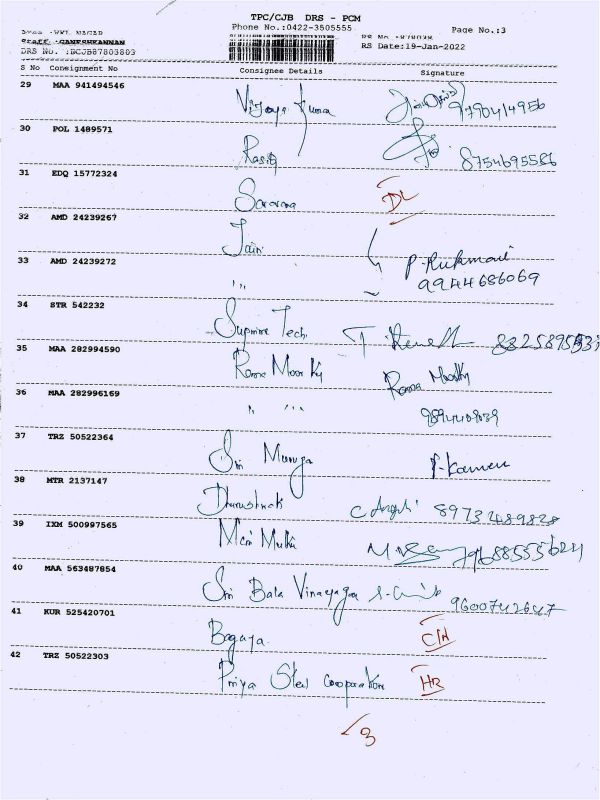 TPC/CJB DRS - PCM
Phone No.:0422-3505555 Page No.:3
Staff :GANESHKANNAN RS Date:19-Jan-2022
DRS No. :BCJB87803803
S No Consignment No Consignee Details Signature
29 MAA 941494546 Vijaya Kumar 9790414956
30 POL 1489571 Rasiq 8754695586
31 EDQ 15772324 Saravana DL
32 AMD 24239267 Jain
33 AMD 24239272 " P. Rukmani
9944686069
34 STR 542232 Supreme Tech
35 MAA 282994590 Rama Moorthy Rama Moorthy
36 MAA 282996169 " "
37 TRZ 50522364 Sri Muruga
38 MTR 2137147 C 8973489828
39 IXM 500997565 Mani Muthu
40 MAA 563487854 Sri Bala Vinayaga 9600742647
41 KUR 525420701
42 TRZ 50522303 Priya Steel Corporation
3